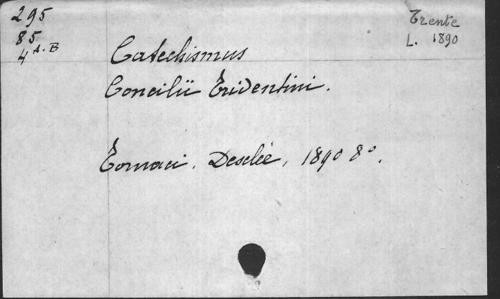 295
85
4 A.B
Trente
L. 1890
Catechismus
Concilii Tridentini.
Tornaci. Desclée, 1890 8°.